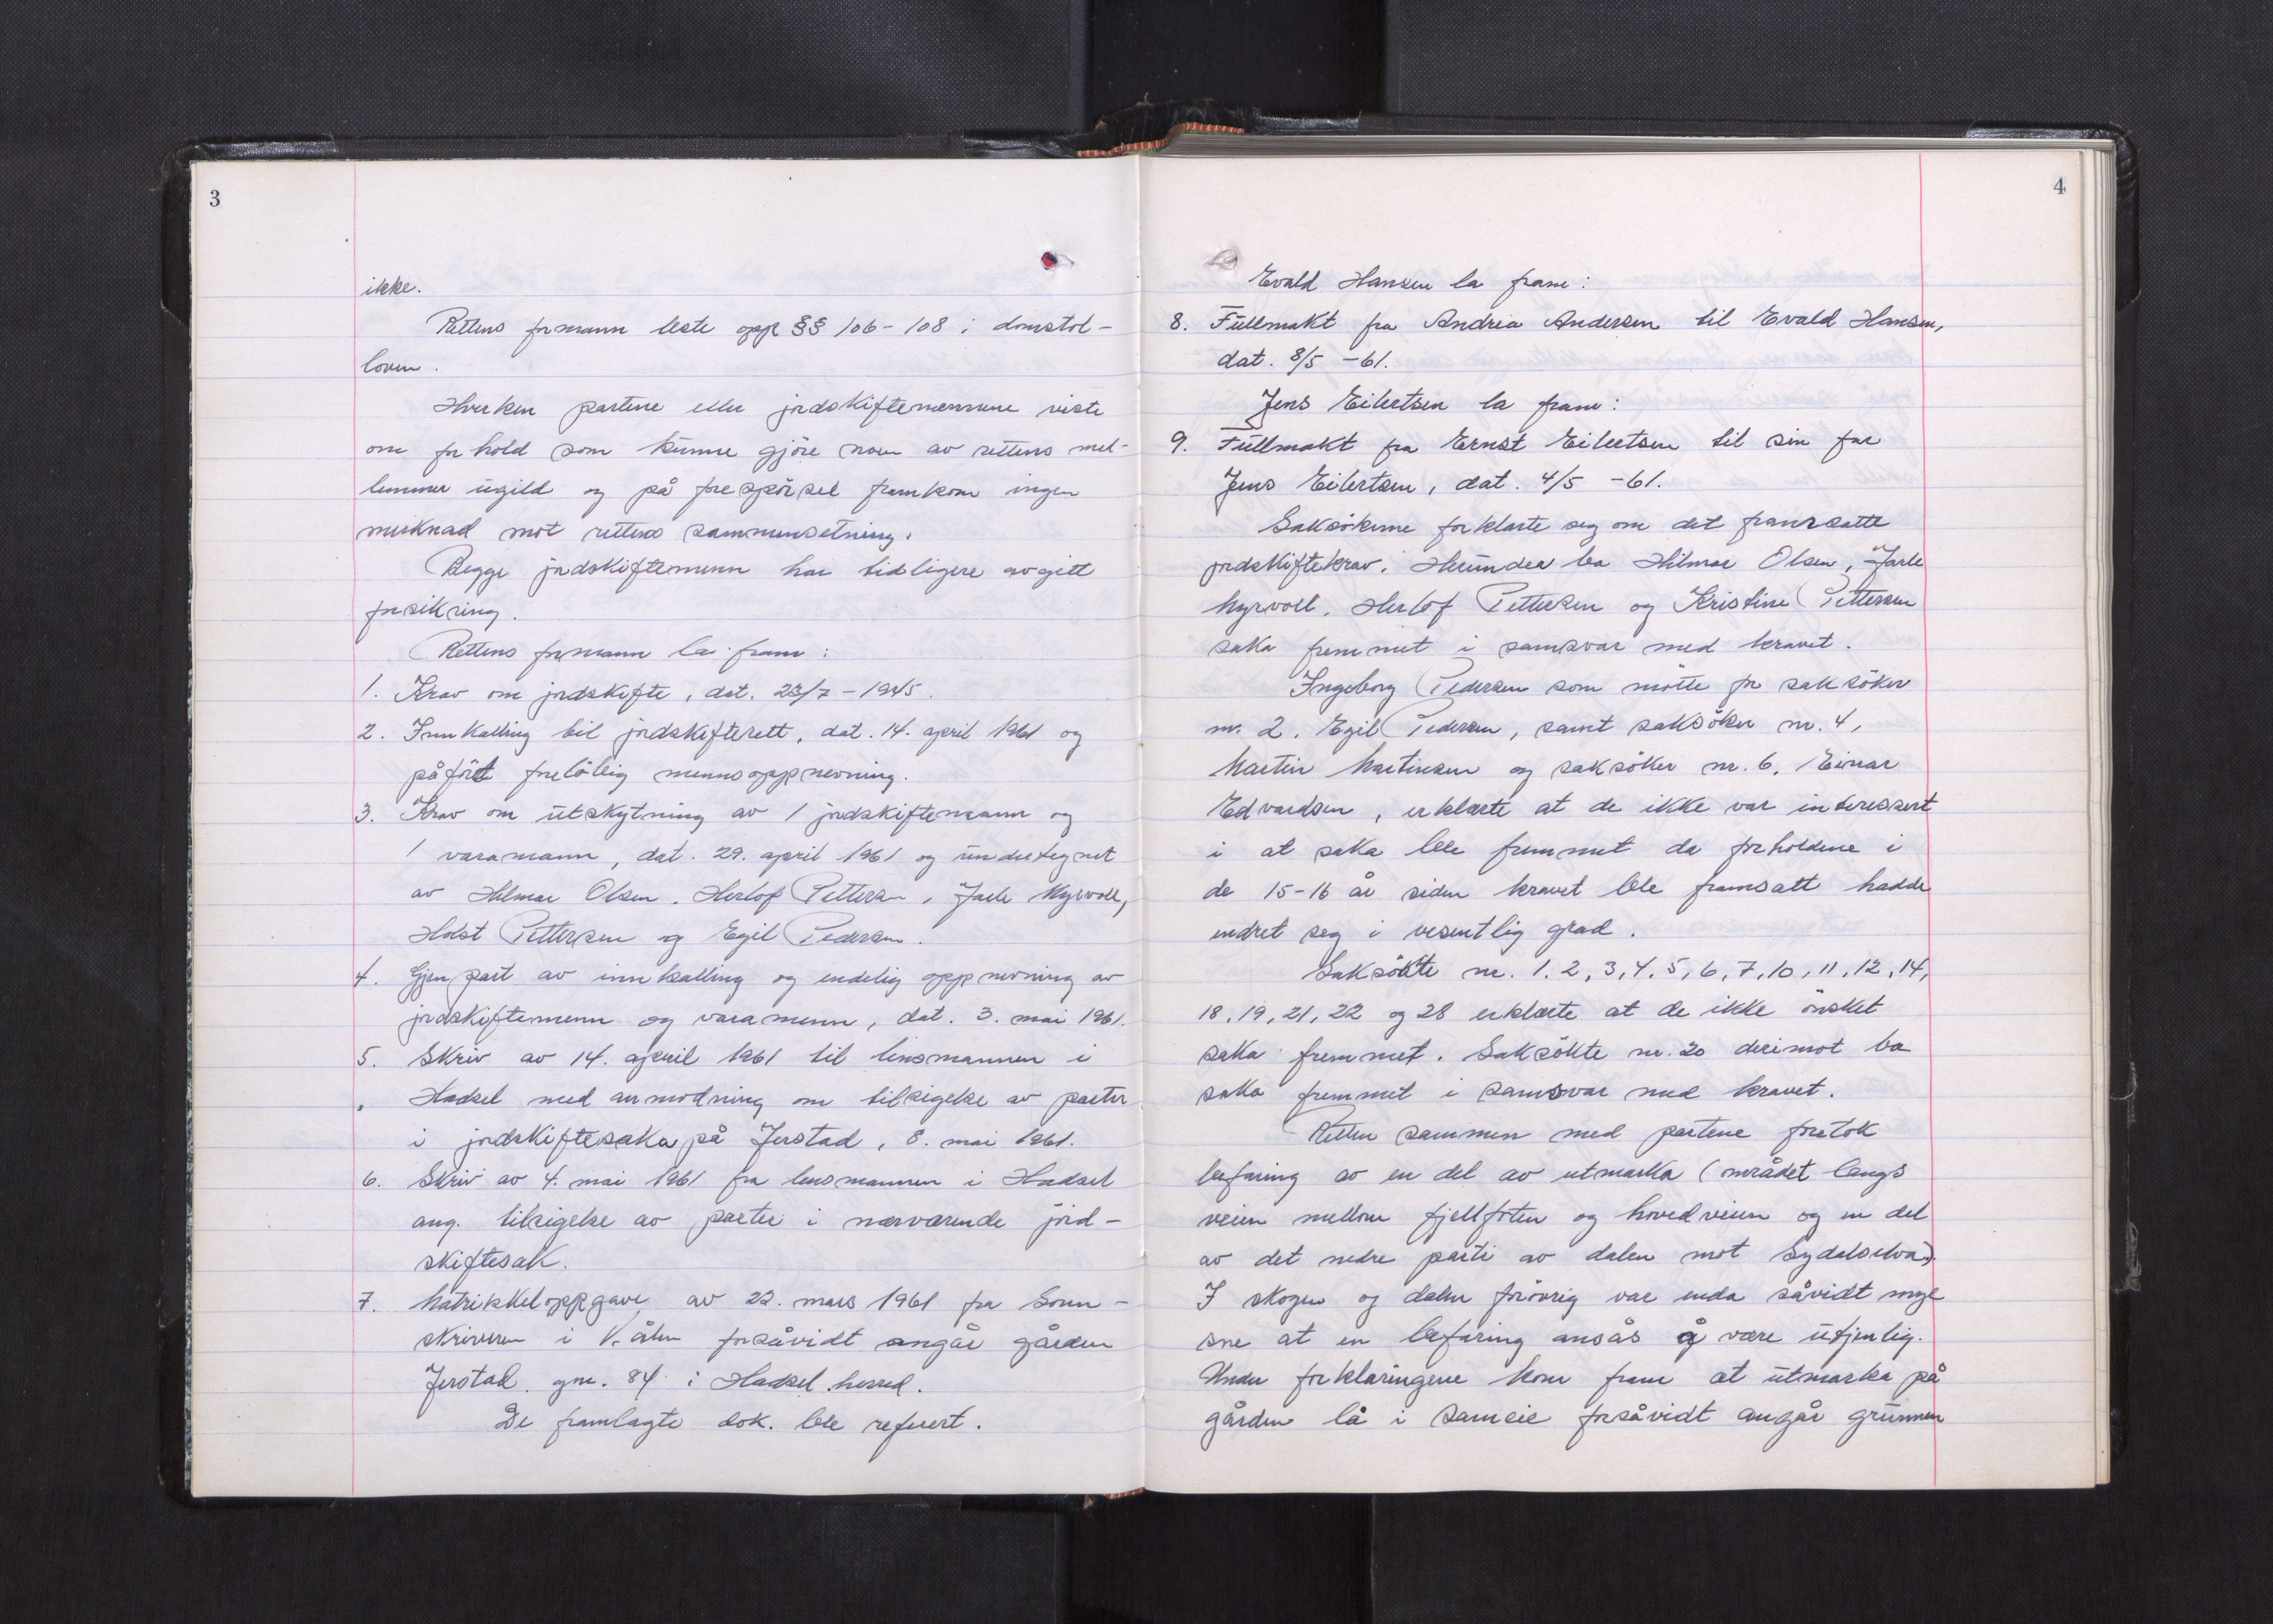 3
ikke.
Rettens formann leste opp §§ 106-108 i domstol-
loven.
Hverken partene eller jordskiftemennene viste
om forhold som kunne gjöre noen av rettens med-
lemmer ugild og på forespörsel framkom ingen
merknad mot rettens sammensetning.
Begge jordskiftemenn har tidligere avgitt
forsikring.
Rettens formann la fram:
1. Krav om jordskifte, dat. 23/7-1945.
2. Innkalling til jordskifterett, dat. 14. april 1961 og
påfört forelöbig mennsoppnevning.
3. Krav om utskytning av 1 jordskiftemann og
1 varamann, dat. 29. april 1961 og undertegnet
av Hilmar Olsen, Herlof Pettersen, Jarle Myrvoll,
Holst Pettersen og Egil Pedersen.
4. Gjenpart av innkalling og endelig oppnevning av
jordskiftemenn og varamenn, dat. 3. mai 1961.
5. Skriv av 14. april 1961 til lensmannen i
Hadsel med anmodning om tilsigelse av parter
i jordskiftesaka på Jerstad, 8. mai 1961.
6. Skriv av 4. mai 1961 fra lensmannen i Hadsel
ang. tilsigelse av parter i nærværende jord-
skiftesak.
7. Matrikkeloppgave av 22. mars 1961 fra Soren-
skriveren i V.ålen forsåvidt angår gården
Jerstad, gnr. 84 i Hadsel herred.
De framlagte dok. ble referert.
4
Evald Hansen la fram:
8. Fullmakt fra Andrea Andersen til Evald Hansen,
dat. 8/5 -61.
Jens Eilertsen la fram:
9. Fullmakt fra Ernst Eilertsen til sin far
Jens Eilertsen, dat. 4/5 -61.
Saksökerne forklarte seg om det framsatte
jordskiftekrav. Herunder ba Hilmar Olsen, Jarle
Myrvoll, Herlof Pettersen og Kristine Pettersen
saka fremmet i samsvar med kravet.
Ingeborg Pedersen som mötte for saksöker
nr. 2, Egil Pedersen, samt saksöker nr. 4,
Martin Martinsen og saksöker nr. 6, Einar
Edvardsen, erklærte at de ikke var interessert
i at saka ble fremmet da forholdene i
de 15-16 år siden kravet ble framsatt hadde
endret seg i vesentlig grad.
Saksökte nr. 1, 2, 3, 4, 5, 6, 7, 10, 11, 12, 14,
18, 19, 21, 22 og 28 erklærte at de ikke önsket
saka fremmet. Saksökte nr. 20 derimot ba
saka fremmet i samsvar med kravet.
Retten sammen med partene foretok
befaring av en del av utmarka (området langs
veien mellom fjellfoten og hovedveien og en del
av det nedre parti av dalen mot Sydalselva).
I skogen og dalen forövrig var enda såvidt mye
sne at en befaring ansås å være utjenlig.
Under forklaringene kom fram at utmarka på
gården lå i sameie forsåvidt angår grunnen